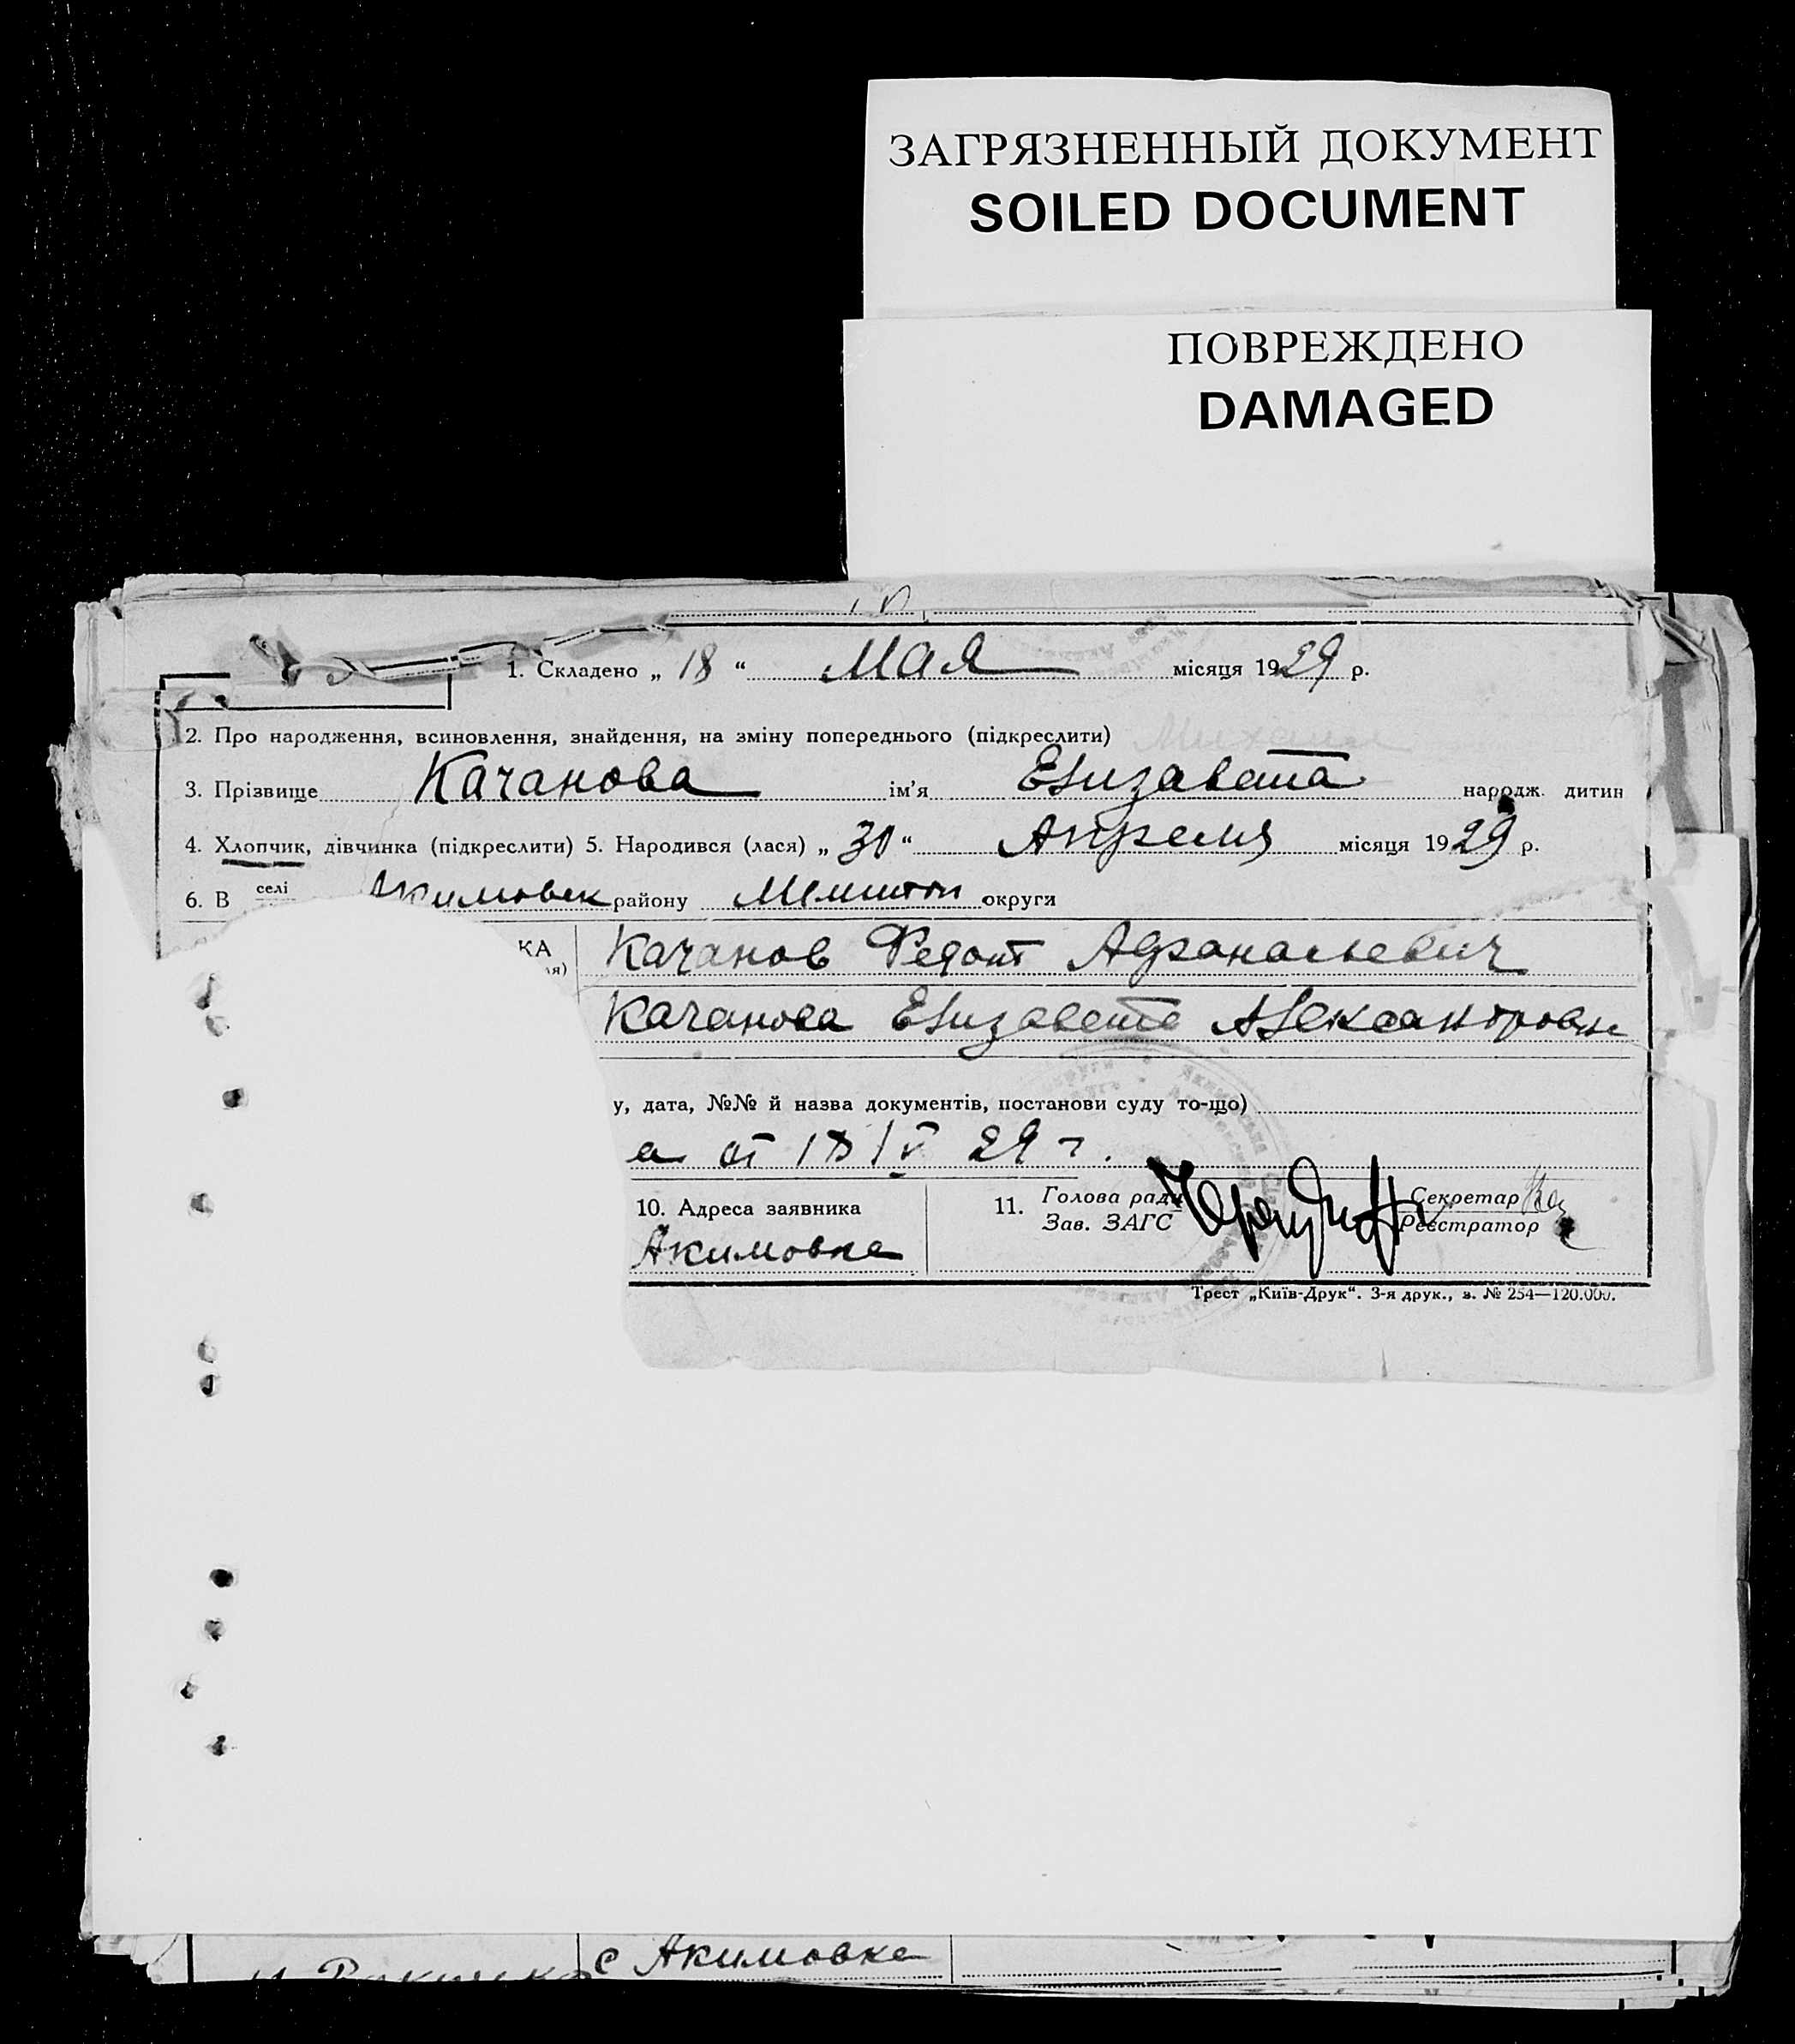 ЗАГРЯЗНЕННЫЙ ДОКУМЕНТ
SOILED DOCUMENT
ПОВРЕЖДЕНО
DAMAGED
1. Складено „ 18 “ Мая місяця 1929 р.
2. Про народження, всиновлення, знайдення, на зміну попереднього (підкреслити) Михаил
3. Прізвище Качанова ім'я Елизавета народж. дитин
4. Хлопчик, дівчинка (підкреслити) 5. Народився (лася) „ 30 “ Апреля місяця 1929 р.
6. В селі Акимовск району Мелитоп округи
КА Качанов Федот Афанасьевич
ля)
Качанова Елизавета Александровна
у, дата, №№ й назва документів, постанови суду то-що)
а от 18/V 29 г.
10. Адреса заявника 11. Голова ради Секретар
Зав. ЗАГС Реєстратор
Акимовка
Трест „Київ-Друк“. 3-я друк., з. № 254—120.000.
с Акимовка